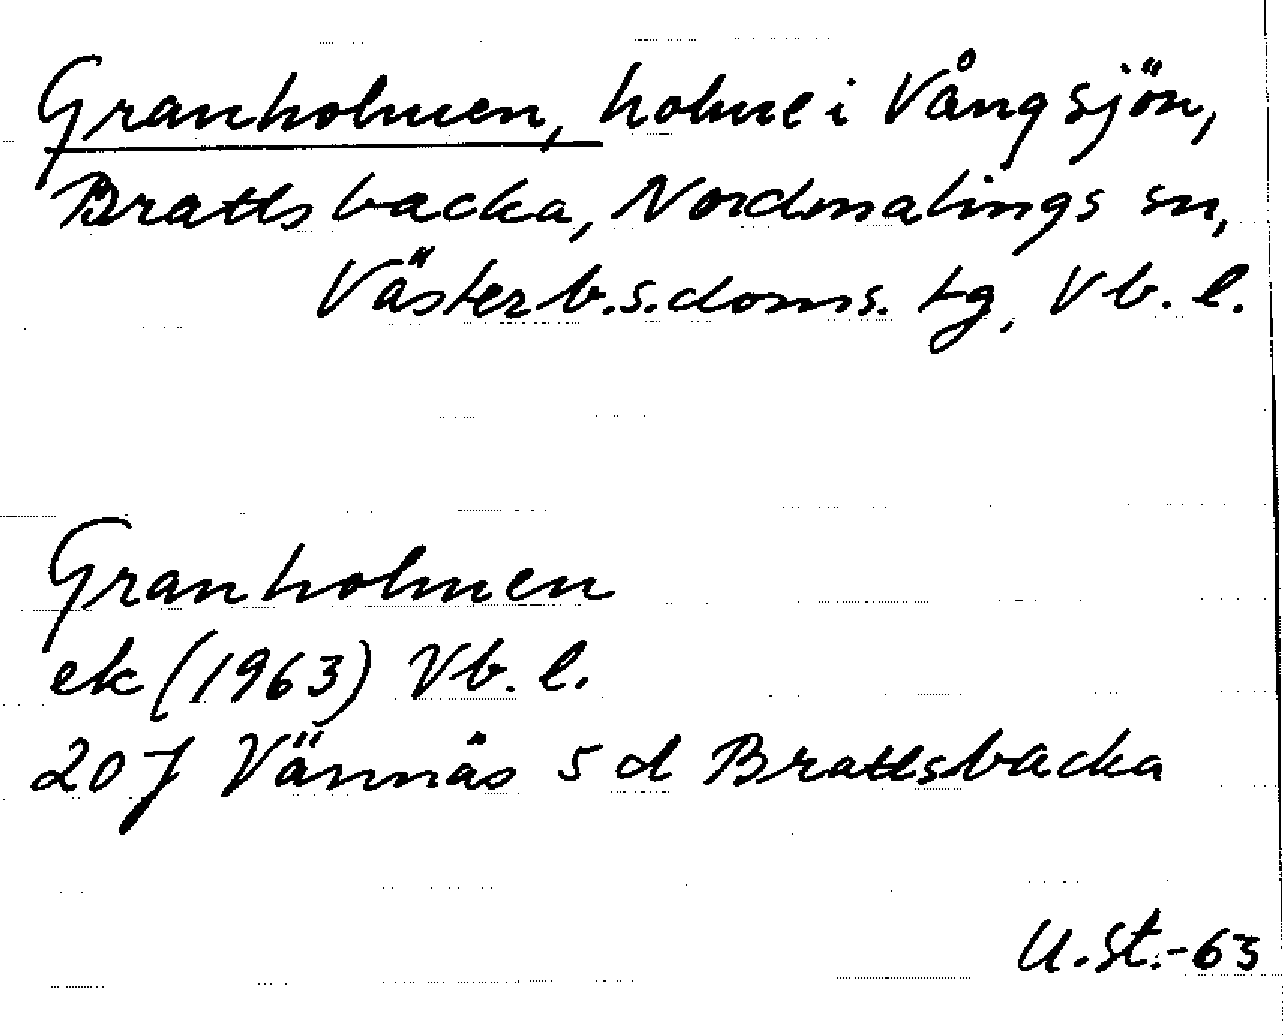 Granholmen, holme i Vångsjön,
Brattsbacka, Nordmalings sn,
Västerb.s.doms. tg, Vb. l.
Granholmen
ek (1963) Vb. l.
20 J Vännäs 5 d Brattsbacka
U.St.-63